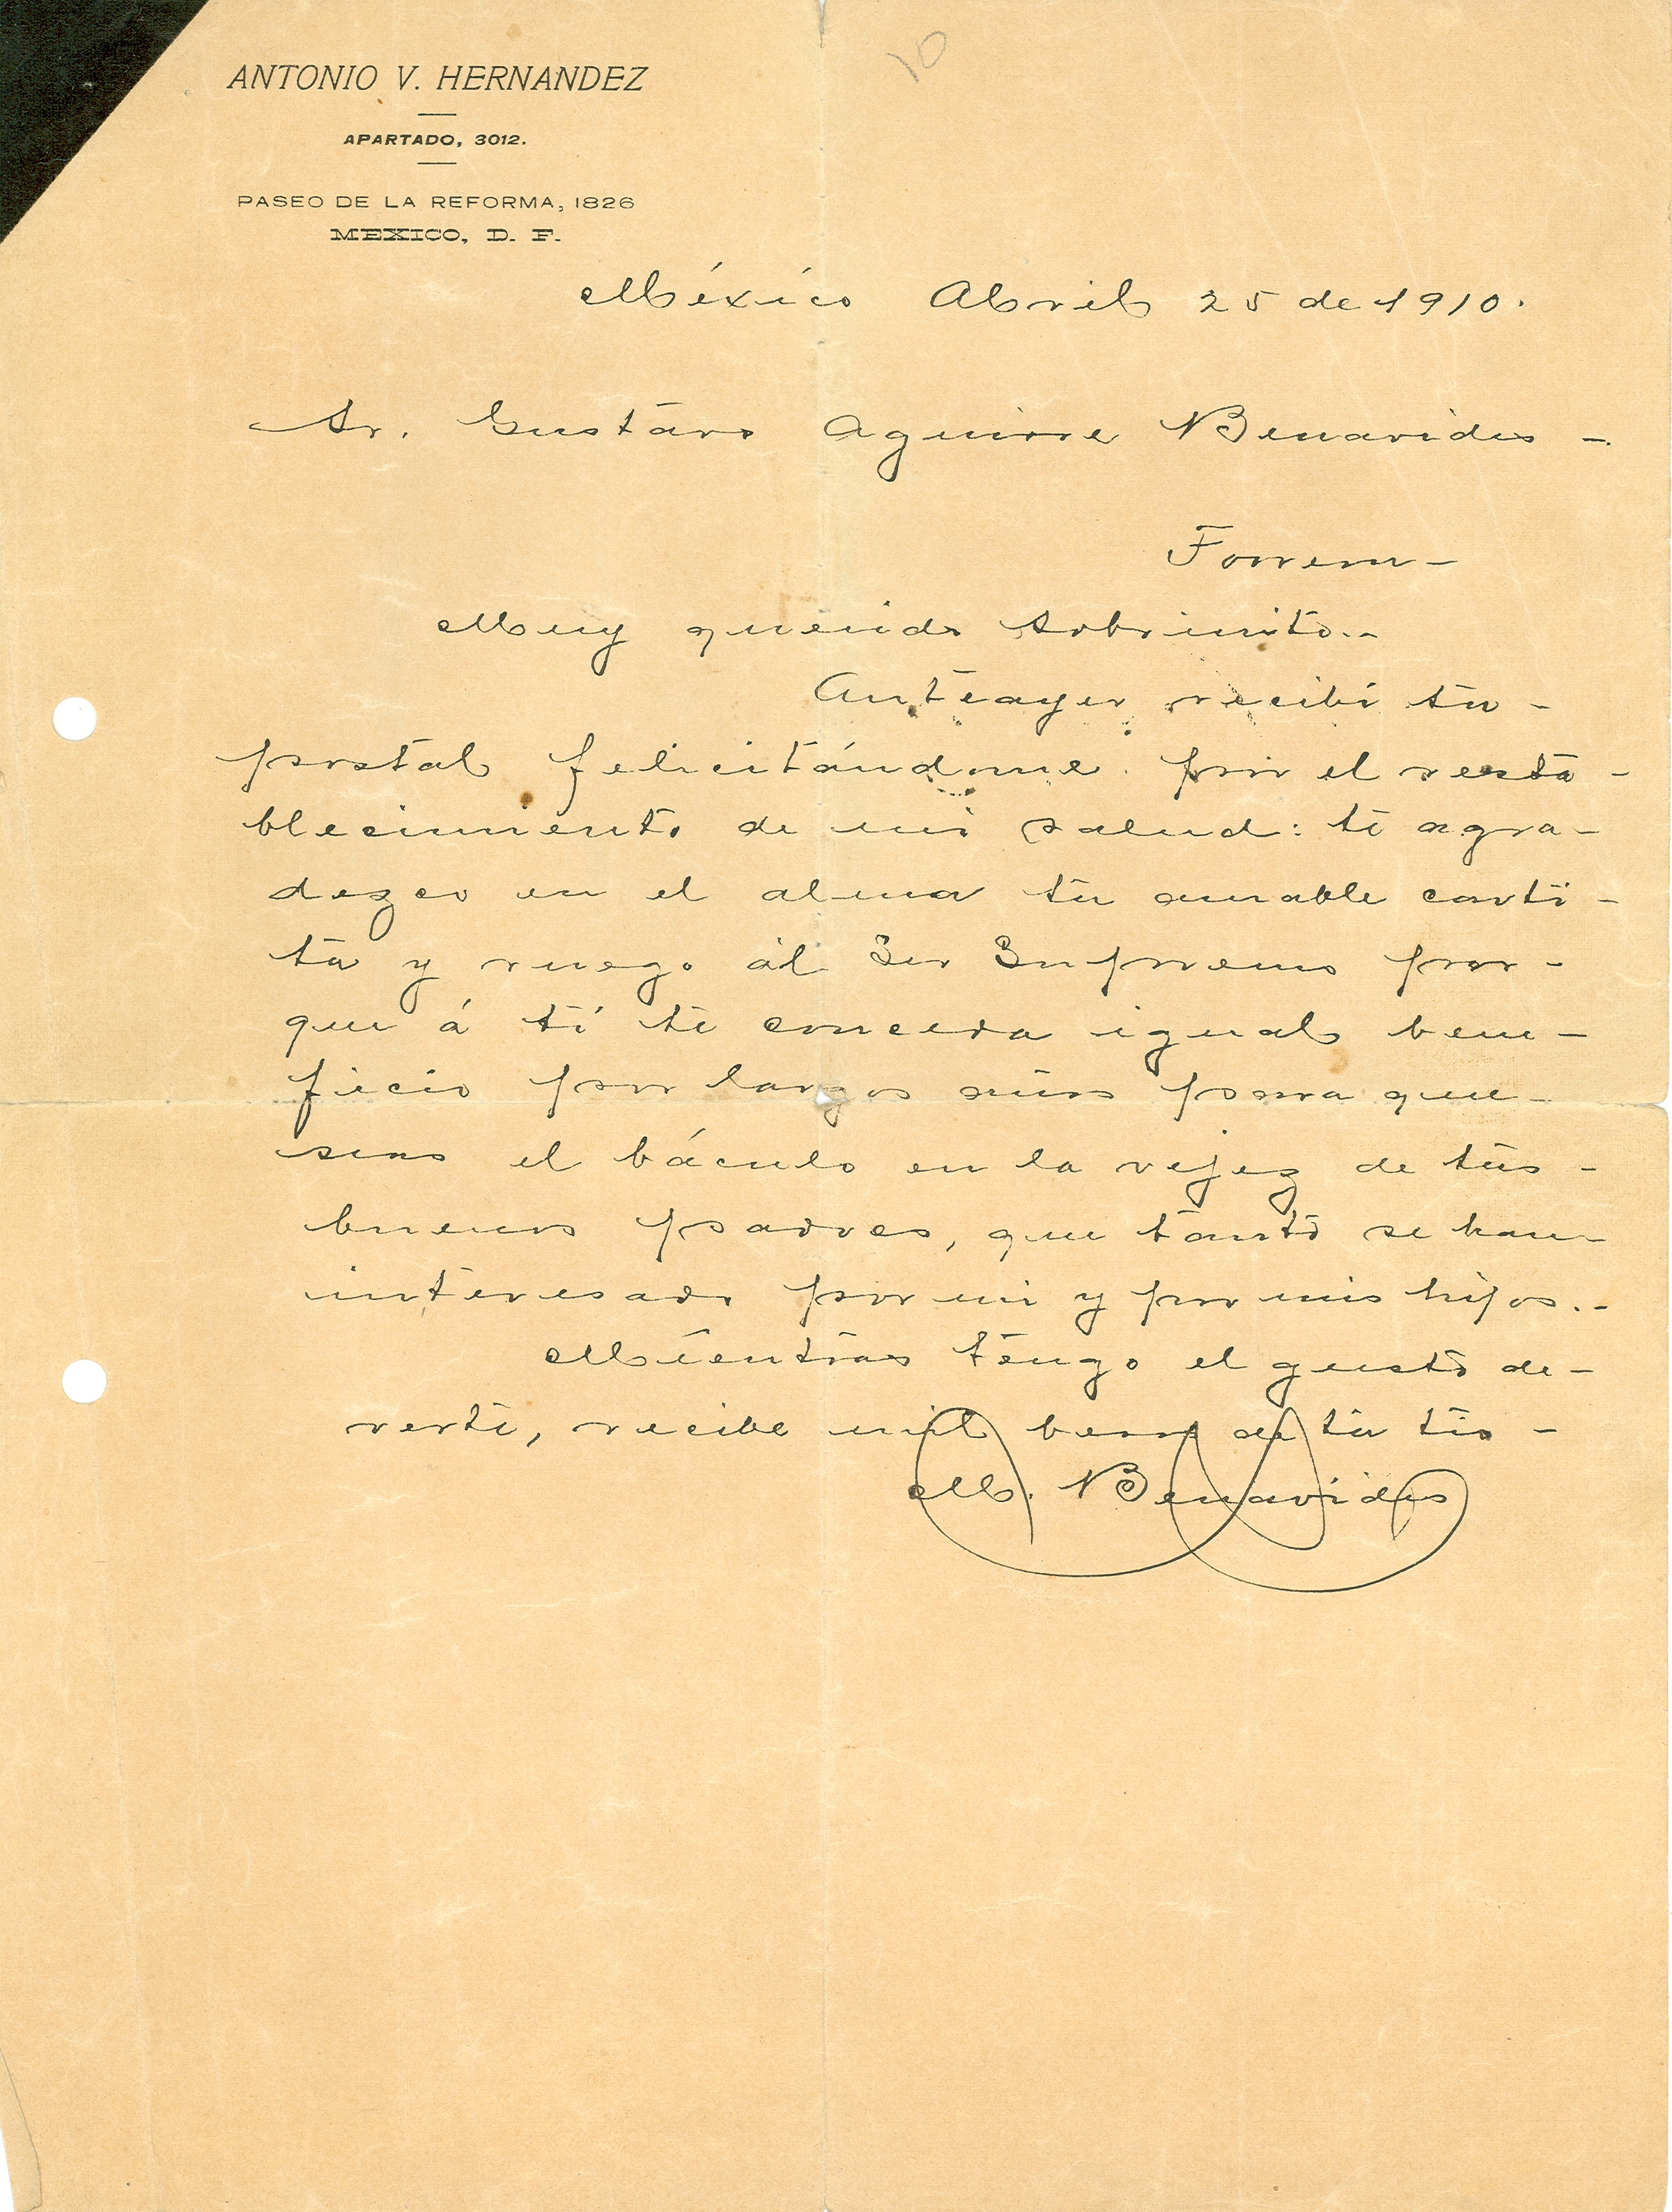 10
ANTONIO V. HERNANDEZ
APARTADO, 3012.
PASEO DE LA REFORMA, 1826
MEXICO, D. F.
México Abril 25 de 1910.
Sr. Gustavo Aguirre Benavides -
Torreon -
Muy querido sobrinito.-
Anteayer recibí tu -
postal felicitándome por el resta -
blecimiento de mi salud: te agra -
dezco en el alma tu amable carti -
ta y ruego al Ser Supremo por -
que á tí te conceda igual bene -
ficio por largos años para que -
seas el báculo en la vejez de tus -
buenos padres, que tanto se han -
interesado por mi y por mis hijos.-
Mientras tengo el gusto de -
verte, recibe mil besos de tu tio -
M. Benavides